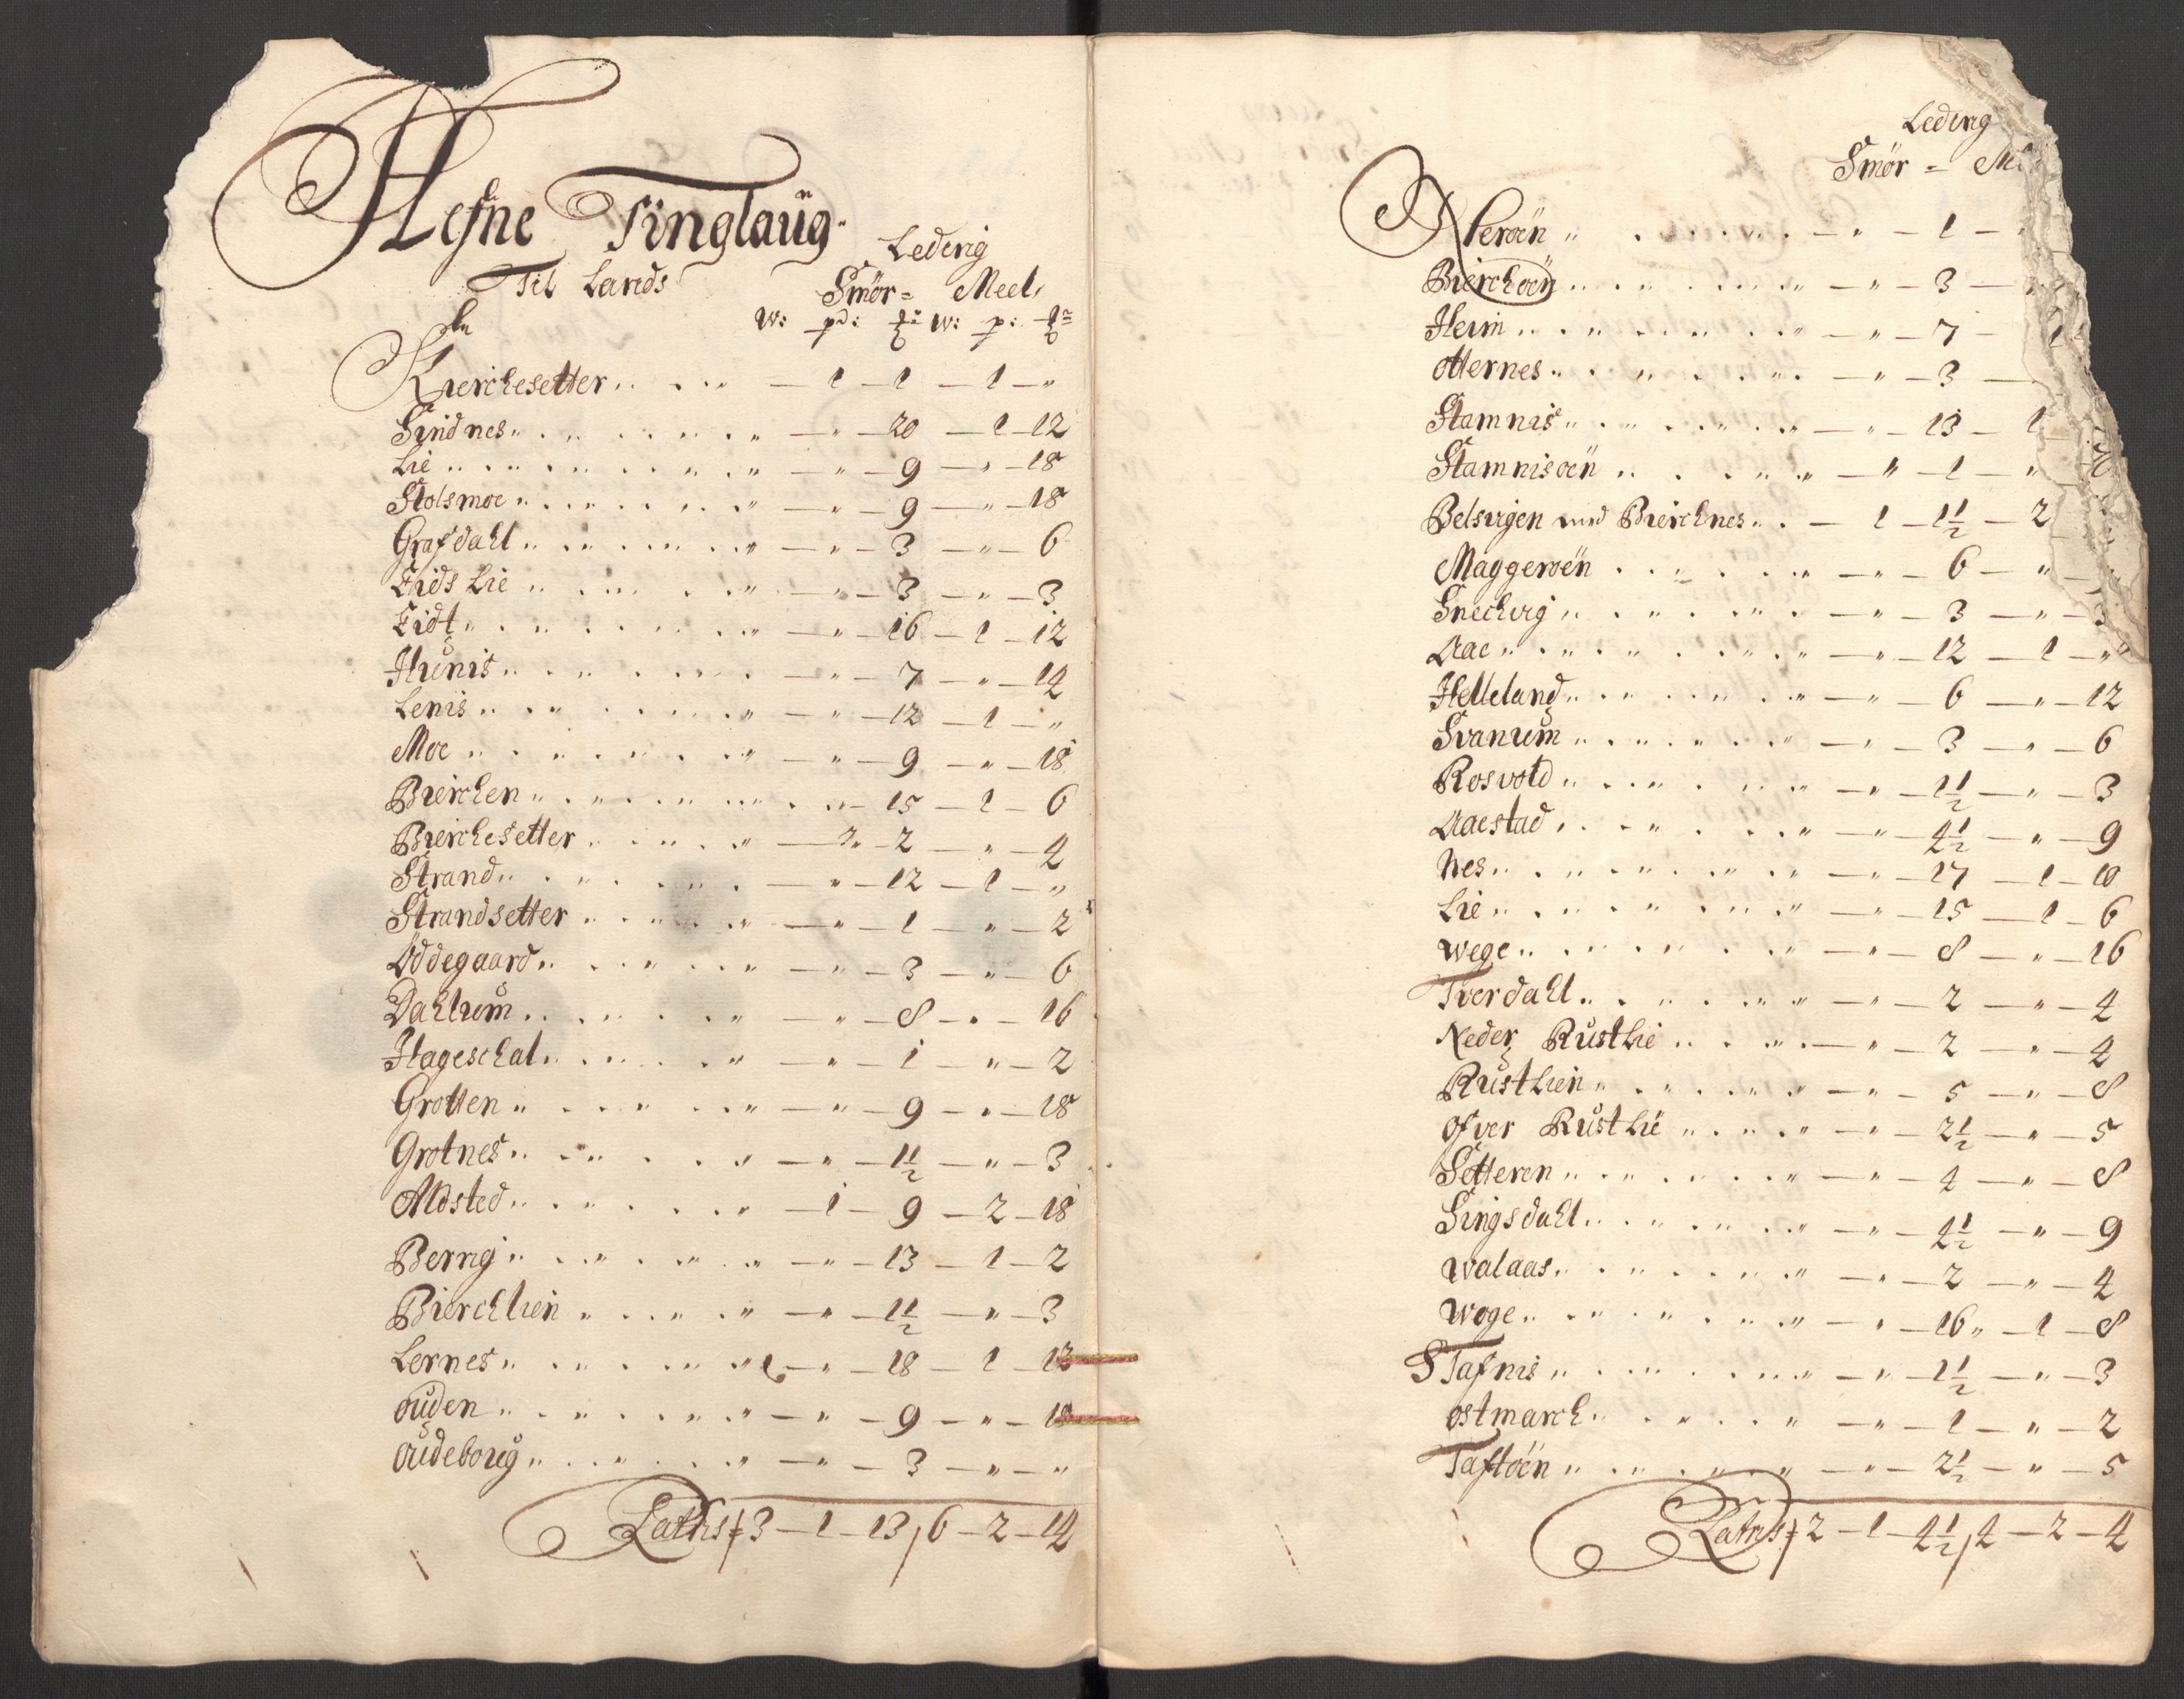 Hefne Tinglaug
Til Lands
Leding
Smör = Meel
W: pd: W: p:
Kierchesetter — 1 — 1 — 1 — "
Sindnes — " — 20 — 1 — 12
Lie — " — 9 — " — 18
Stolsmoe — " — 9 — " — 18
Grafdahl — " — 3 — " — 6
Eids Lie — " — 3 — " — 3
Eidt — " — 16 — 1 — 12
Hunis — " — 7 — " — 14
Lenis — " — 12 — 1 — "
Moe — " — 9 — " — 18
Bierchen — " — 15 — 1 — 6
Bierchesetter — " — 2 — " — 4
Strand — " — 12 — 1 — "
Strandsetter — " — 1 — " — 2
Oddegaard — " — 3 — " — 6
Dahlum — " — 8 — " — 16
Hageschal — " — 1 — " — 2
Grotten — " — 9 — " — 18
Grotnes — " — 1½ — " — 3
Aldsted — 1 — 9 — 2 — 18
Berrig — " — 13 — 1 — 2
Bierchlien — " — 1½ — " — 3
Lernes — " — 18 — 1 — 12
Ouden — " — 9 — " — 18
Oudeboug — " — 3 — " — "
Latris 3 — 1 — 13 / 6 — 2 — 14
Leding
Smör =
— " — 1 —
Bierchöen — " — 3 —
Heim — " — 7 —
Otternes — " — 3 —
Stamnis — " — 13 — 1
Stamnisöen — " — 1 — "
Belsvigen med Bierchnes — 1 — 1½ — 2
Maggeröen — " — 6 — "
Snechvig — " — 3 — " — 3
Aae — " — 12 — 1 — "
Helleland — " — 6 — " — 12
Svanum — " — 3 — " — 6
Rosvold — " — 1½ — " — 3
Aaestad — " — 4½ — " — 9
Nes — " — 17 — 1 — 10
Lie — " — 15 — 1 — 6
Wege — " — 8 — " — 16
Tverdahl — " — 2 — " — 4
Neder Rustlie — " — 2 — " — 4
Rustlien — " — 5 — " — 8
Ofver Rustlie — " — 2½ — " — 5
Setteren — " — 4 — " — 8
Singsdahl — " — 4½ — " — 9
Walaas — " — 2 — " — 4
Woge — " — 16 — 1 — 8
STafnis — " — 1½ — " — 3
Ostmarch — " — 1 — " — 2
Taftöen — " — 2½ — " — 5
Latris 2 — 1 — 4½ / 4 — 2 — 4